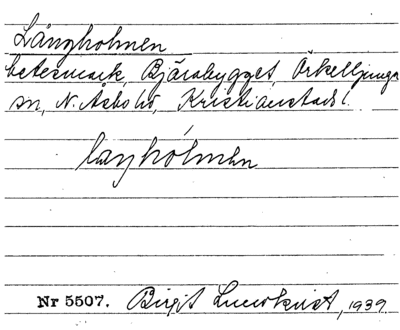 Långholmen
betesmark, Bjärabygget, Örkelljunga
sn, N. Åsbo hd, Kristianstads l.
layhólmhn
Nr 5507. Birgit Lundkvist, 1939.